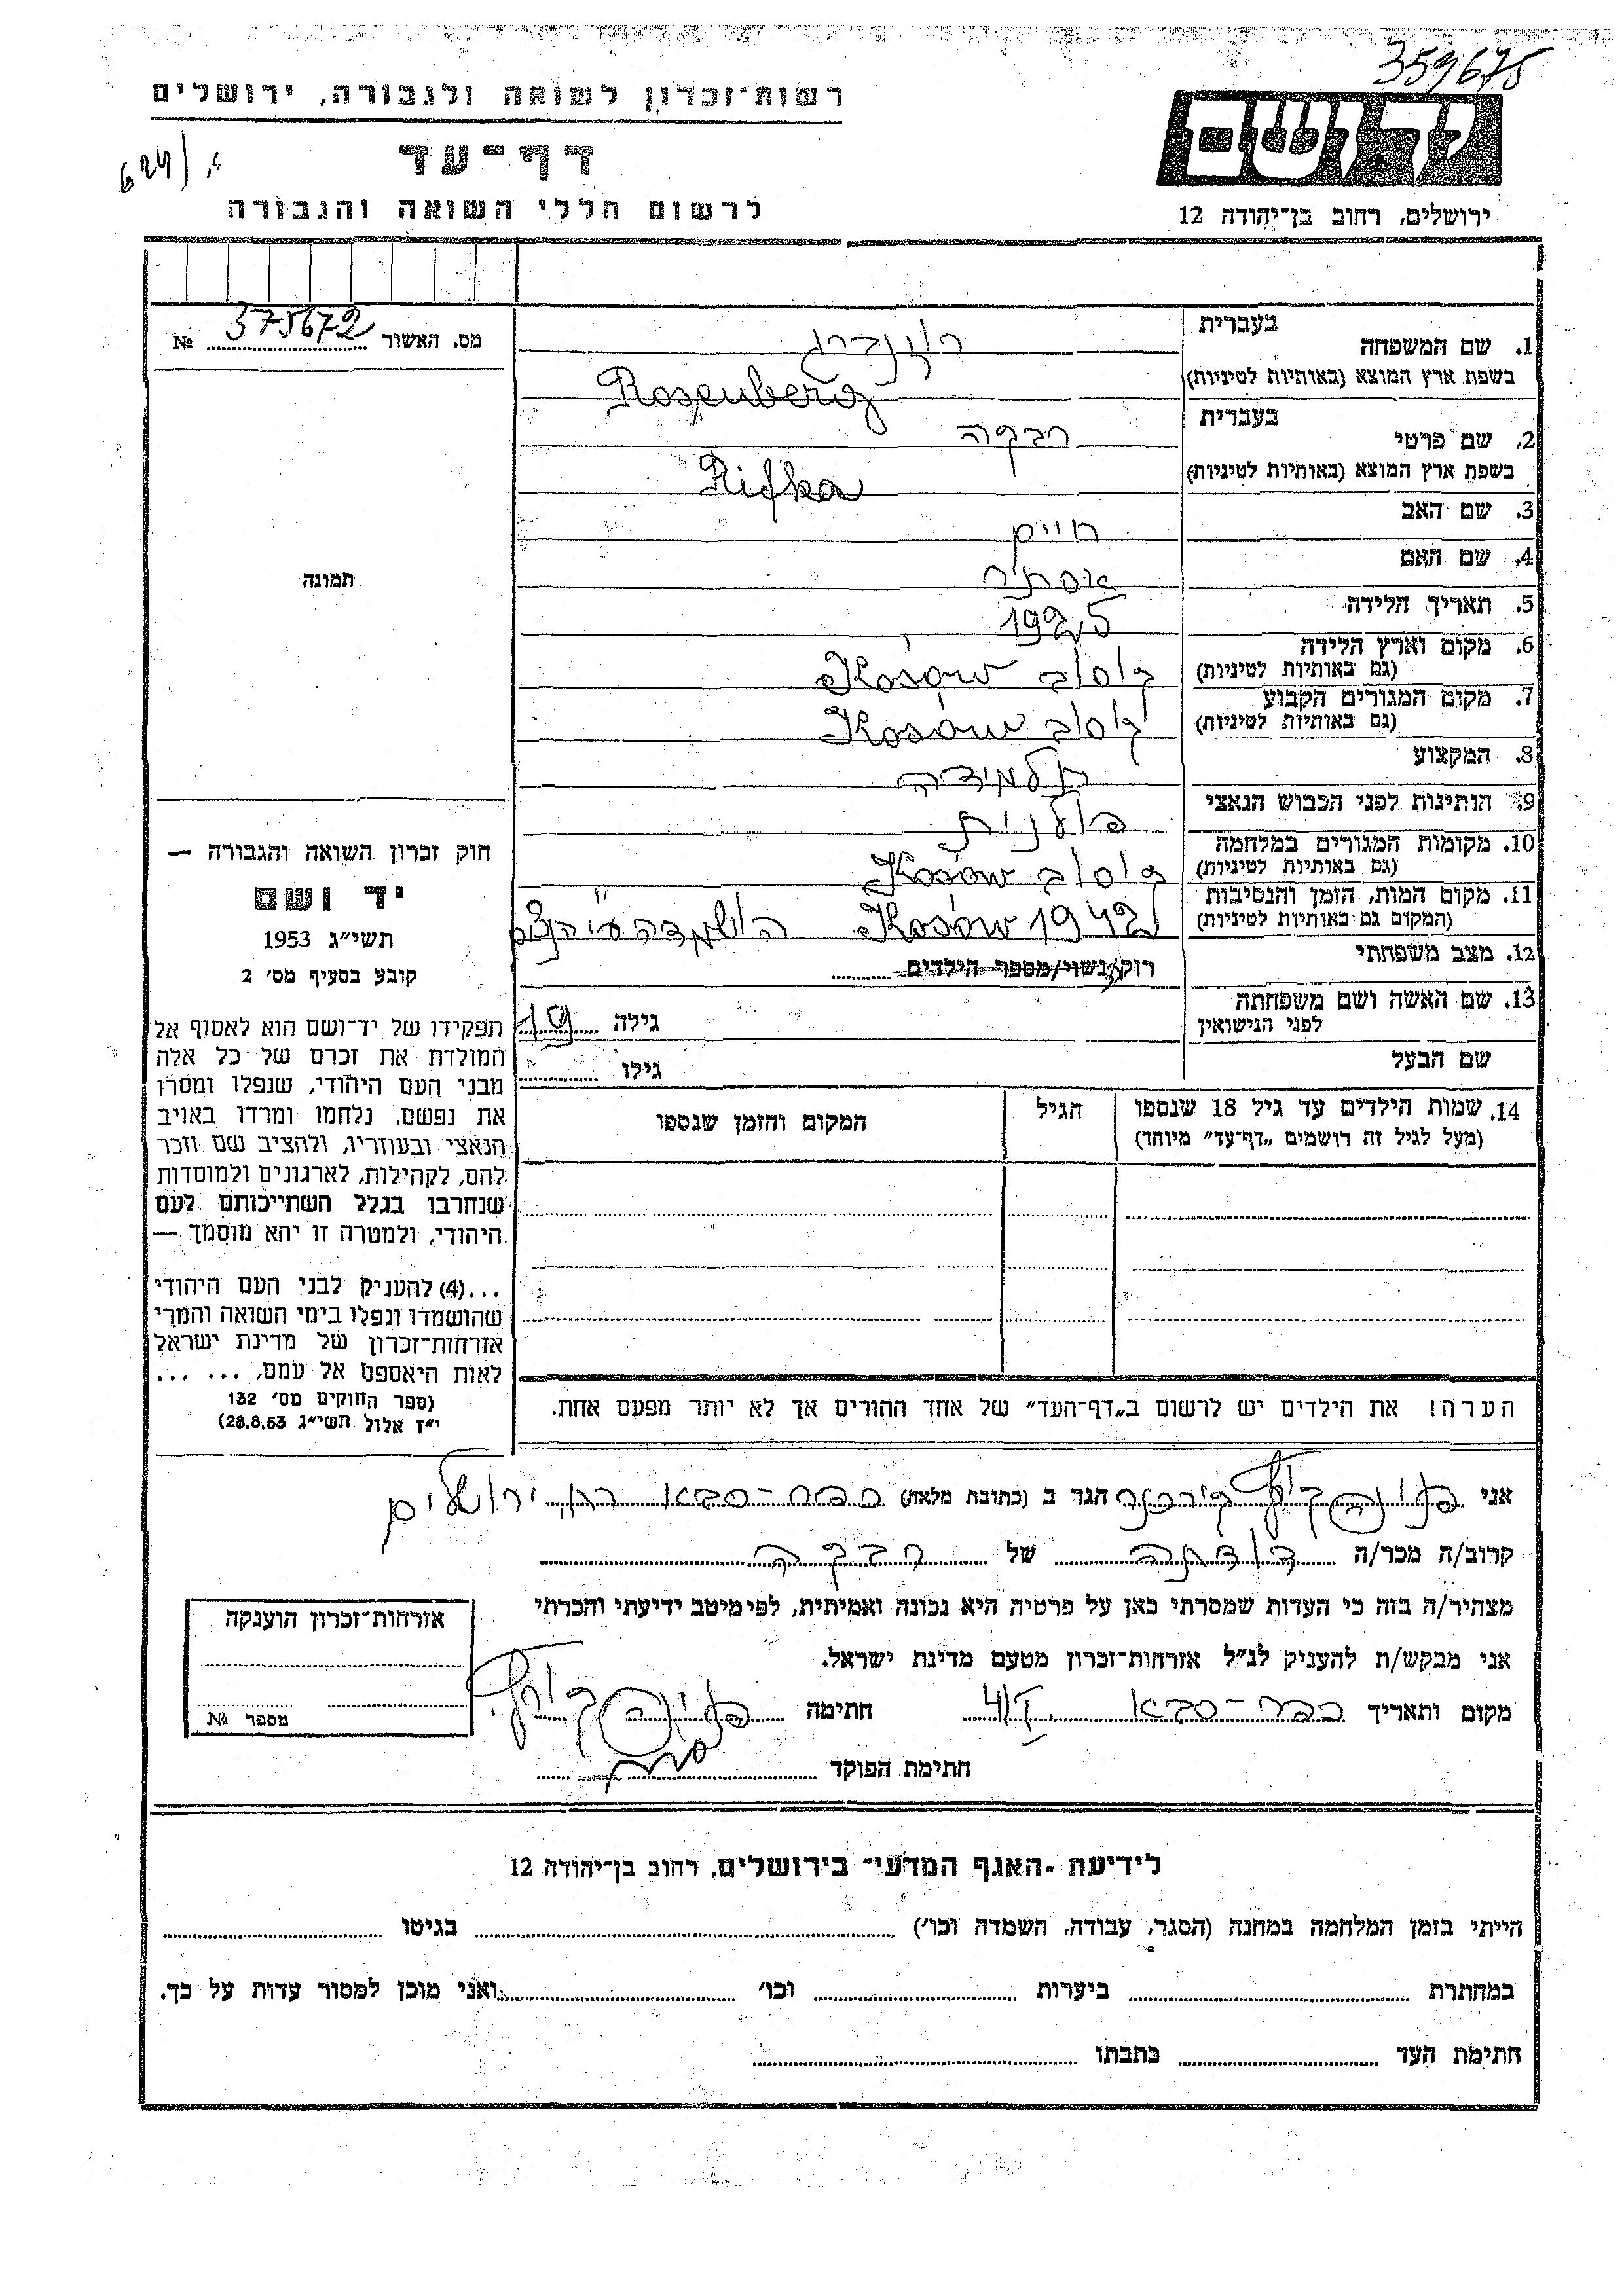 359675
רשות־זכרון לשואה ולגבורה, ירושלים
דף־עד
לרשום חללי השואה והגבורה
יד ושם
ירושלים, רחוב בן־יהודה 12
מס. האשור 375672 №
בעברית
1. שם המשפחה רוזנברג
בשפת ארץ המוצא (באותיות לטיניות) Rosenberg
בעברית
2. שם פרטי רבקה
בשפת ארץ המוצא (באותיות לטיניות) Rifka
3. שם האב חיים
4. שם האם אסתר
5. תאריך הלידה 1925
6. מקום וארץ הלידה
(גם באותיות לטיניות) קוסוב Kosów
7. מקום המגורים הקבוע
(גם באותיות לטיניות) קוסוב Kosów
8. המקצוע תלמידה
9. הנתינות לפני הכבוש הנאצי פולנית
10. מקומות המגורים במלחמה
(גם באותיות לטיניות) קוסוב Kosów
11. מקום המות, הזמן והנסיבות
(המקום גם באותיות לטיניות) Kosów 1942 הושמדה ע״י הנצים
12. מצב משפחתי רוק/נשוי/מספר הילדים
13. שם האשה ושם משפחתה
לפני הנישואין
גילה 19
שם הבעל
גילו
תמונה
חוק זכרון השואה והגבורה —
יד ושם
תשי״ג 1953
קובע בסעיף מס׳ 2
תפקידו של יד־ושם הוא לאסוף אל
המולדת את זכרם של כל אלה
מבני העם היהודי, שנפלו ומסרו
את נפשם, נלחמו ומרדו באויב
הנאצי ובעוזריו, ולהציב שם וזכר
להם, לקהילות, לארגונים ולמוסדות
שנחרבו בגלל השתייכותם לעם
היהודי, ולמטרה זו יהא מוסמך —
...(4) להעניק לבני העם היהודי
שהושמדו ונפלו בימי השואה והמרי
אזרחות־זכרון של מדינת ישראל
לאות היאספם אל עמם, ... ...
(ספר החוקים מס׳ 132
י״ז אלול תשי״ג 28.8.53)
14. שמות הילדים עד גיל 18 שנספו
(מעל לגיל זה רושמים „דף־עד״ מיוחד)
הגיל
המקום והזמן שנספו
הערה! את הילדים יש לרשום ב„דף־העד״ של אחד ההורים אך לא יותר מפעם אחת.
אני הגר ב (כתובת מלאה) כפר־סבא רח׳ ירושלים
קרוב/ה מכר/ה דודתה של רבקה
מצהיר/ה בזה כי העדות שמסרתי כאן על פרטיה היא נכונה ואמיתית, לפי מיטב ידיעתי והכרתי
אני מבקש/ת להעניק לנ״ל אזרחות־זכרון מטעם מדינת ישראל.
מקום ותאריך כפר־סבא חתימה
חתימת הפוקד
אזרחות־זכרון הוענקה
מספר №
לידיעת ״האגף המדעי״ בירושלים, רחוב בן־יהודה 12
הייתי בזמן המלחמה במחנה (הסגר, עבודה, השמדה וכו׳) בגיטו
במחתרת ביערות וכו׳ ואני מוכן למסור עדות על כך.
חתימת העד כתבתו